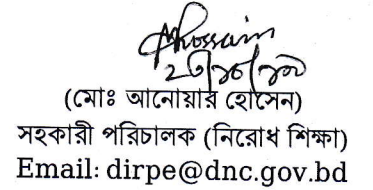 Mhossain
(মোঃ আনোয়ার হোসেন)
সহকারী পরিচালক (নিরোধ শিক্ষা)
Email: dirpe@dnc.gov.bd